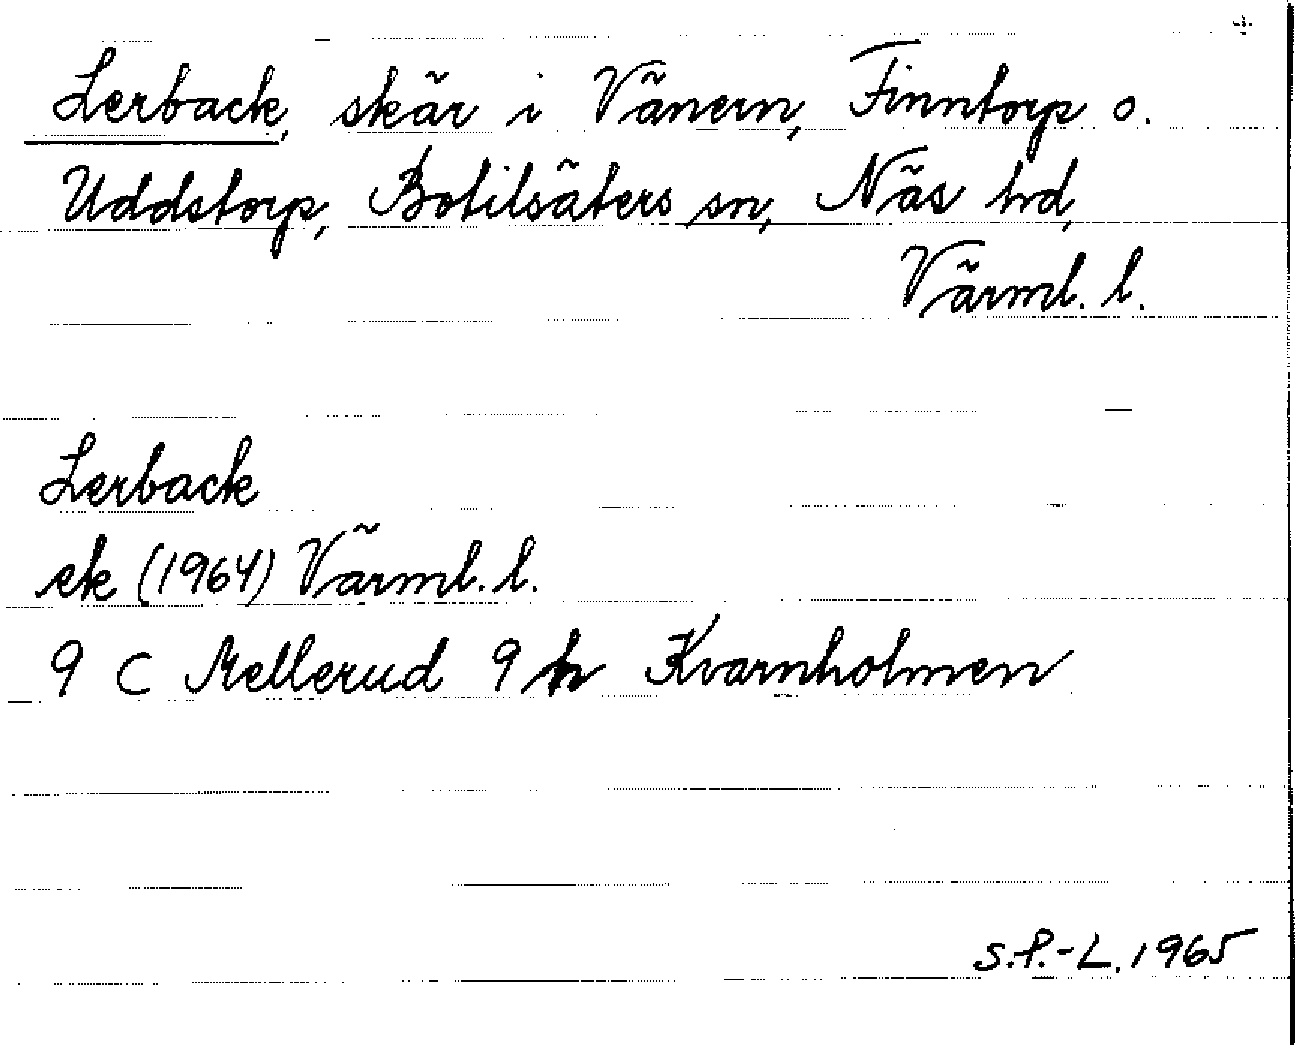 Lerback, skär i Vänern, Finntorp o.
Uddstorp, Botilsäters sn, Näs hd,
Värml. l.
Lerback
ek (1964) Värml. l.
9 C Mellerud 9 h Kvarnholmen
S.P.-L. 1965